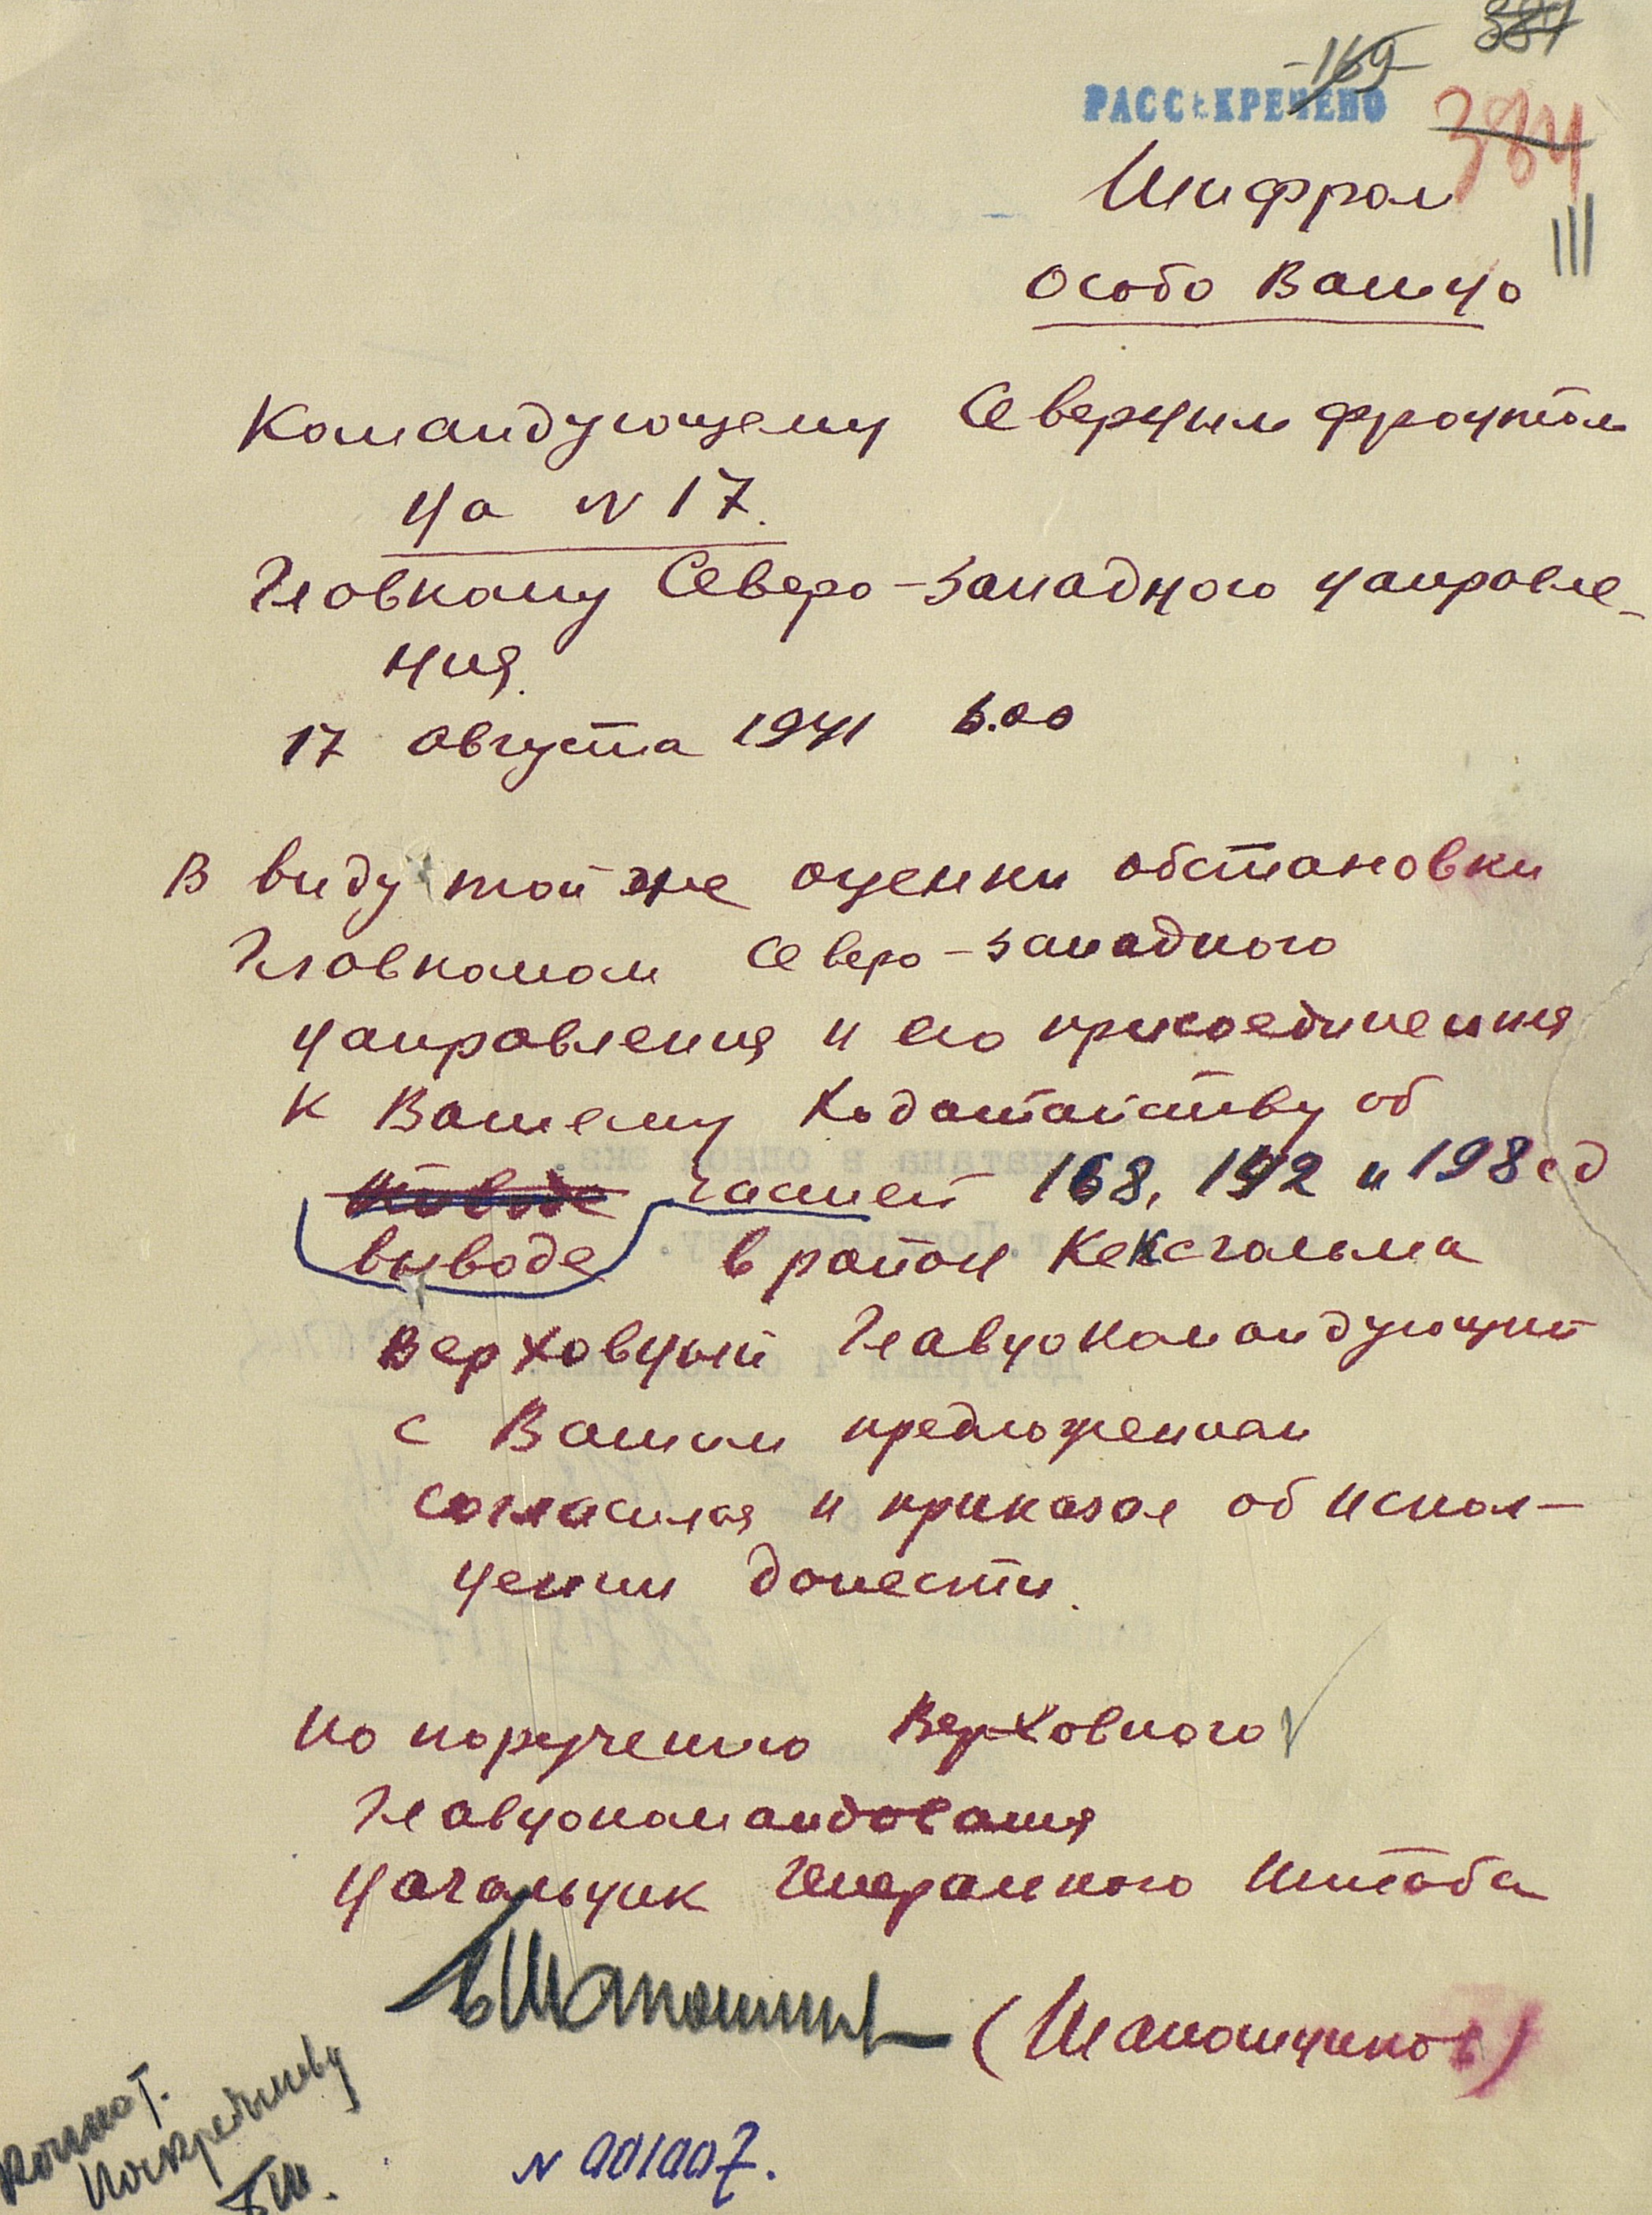 387
-169-
РАССЕКРЕЧЕНО
384
Шифром
Особо Важно
Командующему Северным фронтом
на N 17.
Главкому Северо-западного направле-
ния.
17 августа 1941 6.00
В виду той же оценки обстановки
Главкомом Северо-западного
направления и его присоединения
к Вашему ходатайству об
частей 168, 142 и 198 сд
выводе в район Кексгольма
Верховный Главнокомандующий
с Вашим предложением
согласился и приказал об испол-
нении донести.
По поручению Верховного
Главнокомандования
Начальник Генерального Штаба
БШапошников (Шапошников)
Копию т.
Поскребышеву
БШ.
N 001007.